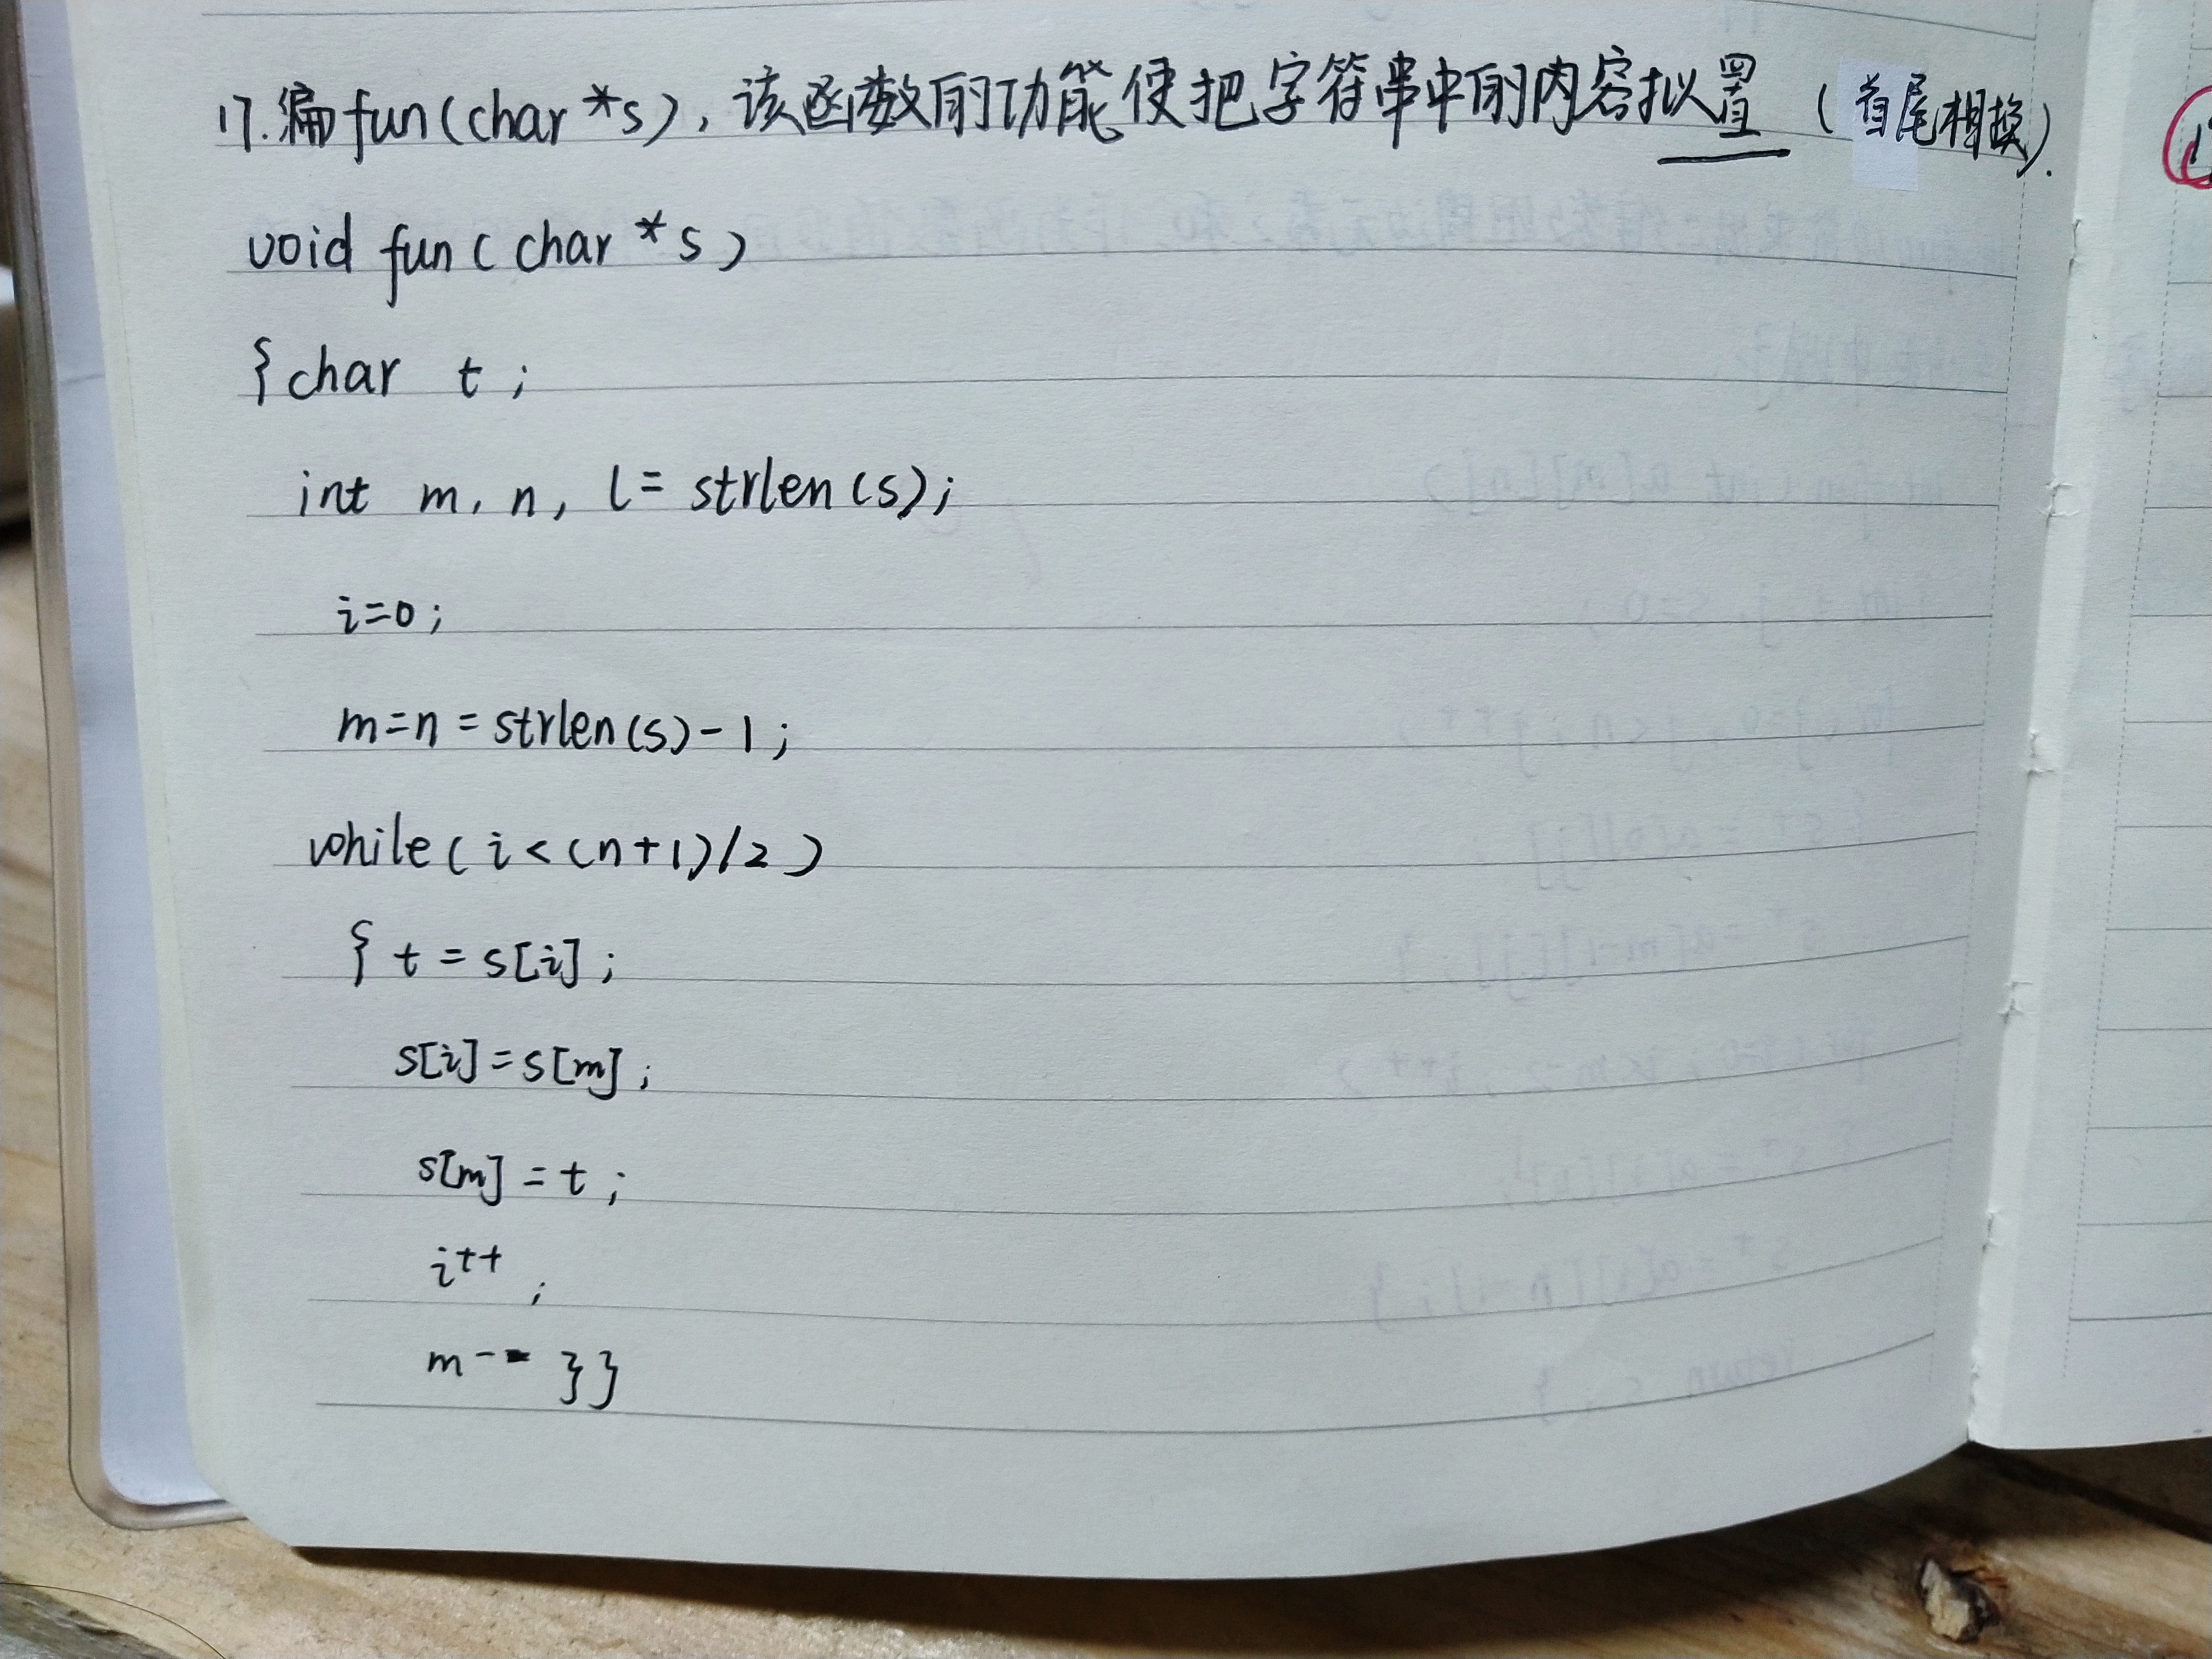 17.编fun(char *s),该函数的功能使把字符串中的内容拟置(首尾相换).
void fun(char *s)
{char t;
int m, n, l = strlen(s);
i=0;
m=n=strlen(s)-1;
while(i<(n+1)/2)
{t=s[i];
s[i]=s[m];
s[m]=t;
i++;
m--}}